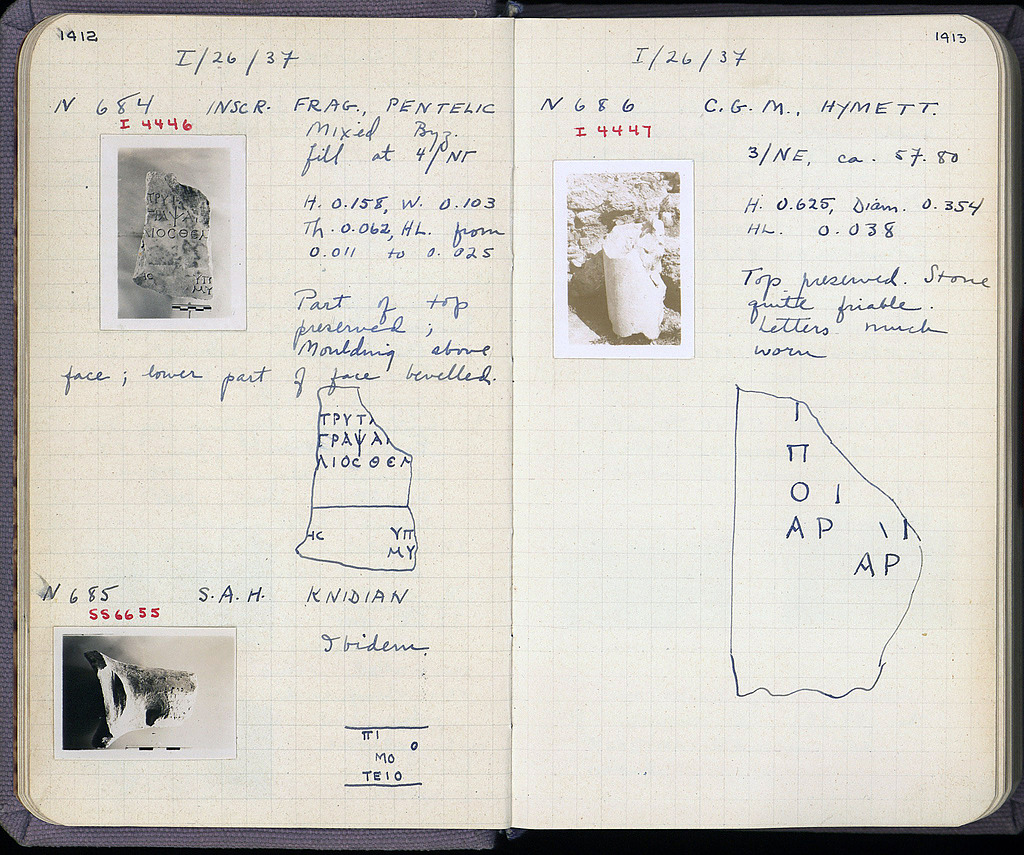 1412
I/26/37
N 684 INSCR. FRAG., PENTELIC
I 4446
Mixed Byz.
fill at 4/ΝΓ
H. 0.158, W. 0.103
Th. 0.062, HL. from
0.011 to 0.025
Part of top
preserved;
Moulding above
face; lower part of face bevelled.
ΤΡΥΤ
ΓΡΑΨΑ
ΛΙΟϹΘΕΛ
ΗϹ ΥΠ
ΜΥ
N 685 S.A.H. KNIDIAN
SS6655
Ibidem.
ΠΙ
Ο
ΜΟ
ΤΕΙΟ
1413
I/26/37
N 686 C.G.M., HYMETT.
I 4447
3/NE, ca. 57.80
H. 0.625, Diam. 0.354
HL. 0.038
Top preserved. Stone
quite friable.
Letters much
worn
Ι
Π
Ο Ι
ΑΡ \Ι
ΑΡ